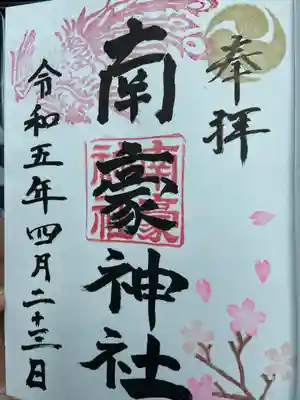 奉拝
南豪神社
南豪神社
令和五年四月二十三日